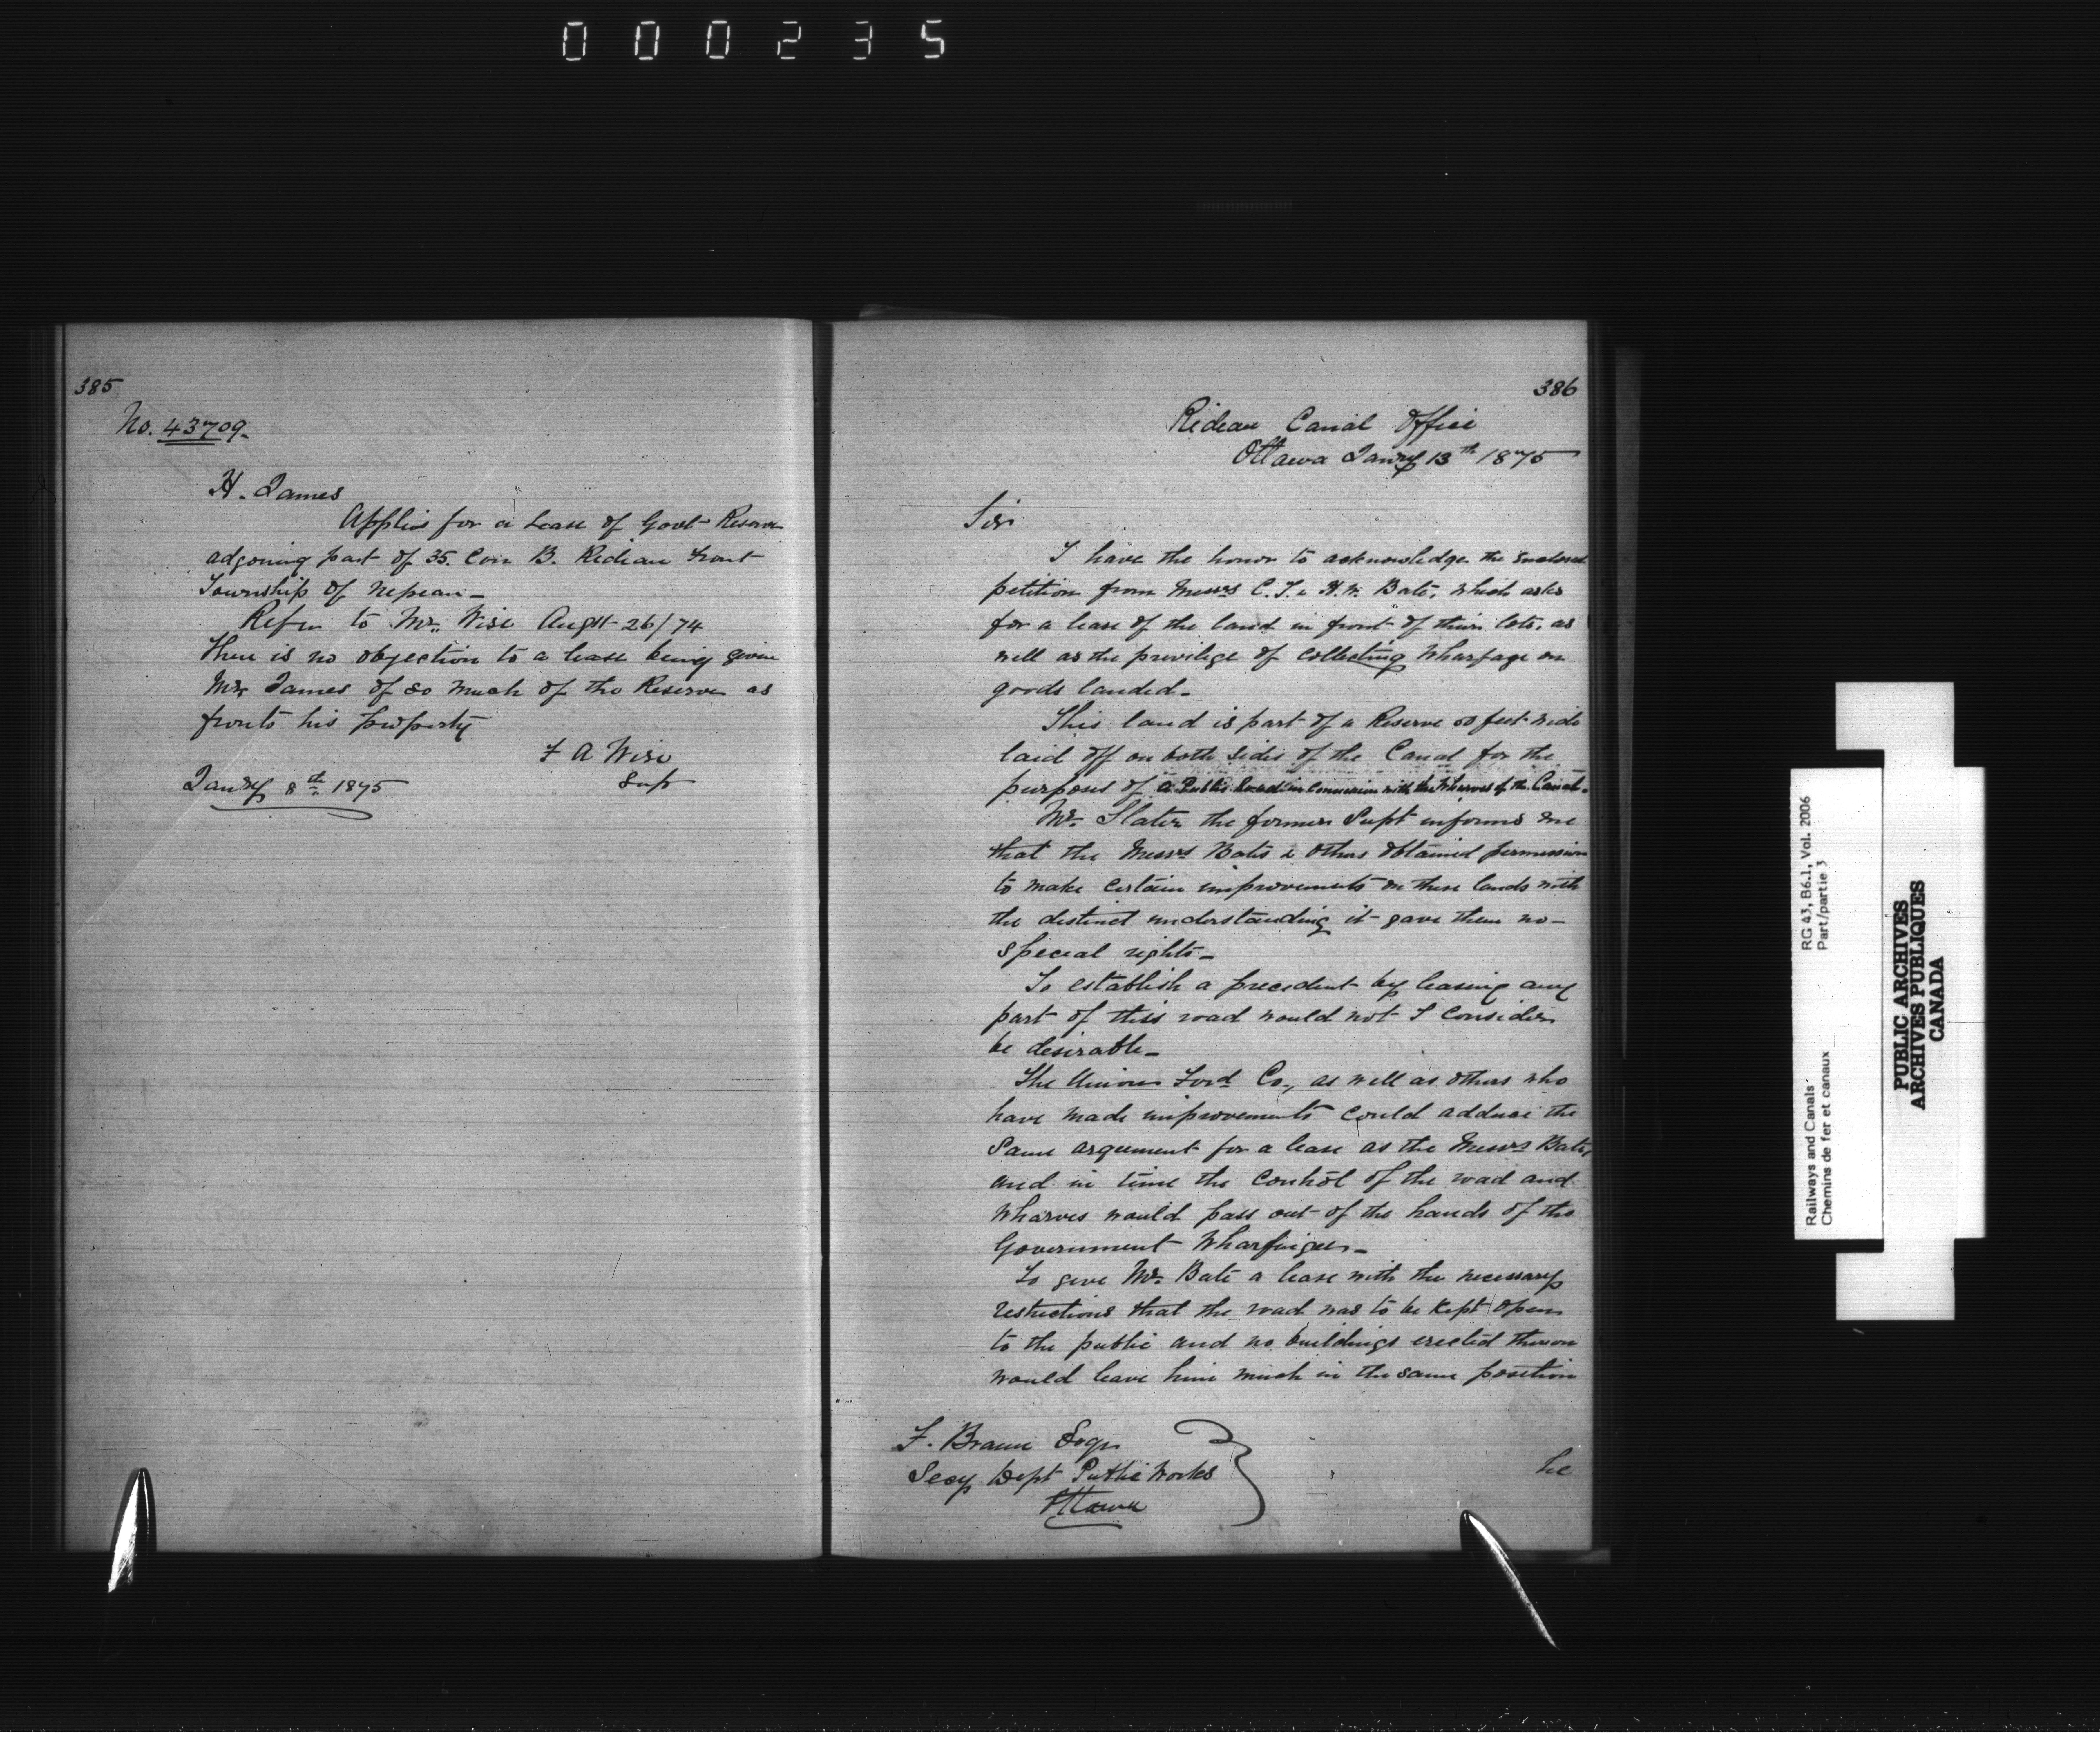 000235
385
No. 43709.
H. James
Applies for a Lease of Govt Reserve
adjoining part of 35. Con B. Rideau Front
Township of Nepean_
Refer to Mr. Wise Augst 26/74
There is no objection to a lease being given
Mr. James of so much of the Reserve as
fronts his property
F A Wise
Sup
Jany 8th 1875
386
Rideau Canal Office
Ottawa Jany 13th 1875
Sir
I have the honor to acknowledge the enclosed
petition from Messrs C. T. & H. N. Bate, which asks
for a lease of the land in front of their lots, as
well as the privilige of collecting wharfage on
goods landed_
This land is part of a Reserve feet wide
laid off on both sides of the Canal for the
purposes of a Public Road in connexion with the Wharves of the Canal.
Mr. Slater the former Supt informs me
that the Messrs Bate & others obtained permission
to make certain improvements on these lands with
the distinct understanding it gave them no
special rights_
To establish a precedent by leasing any
part of this road would not I consider
be desirable_
The Union Forwd Co., as well as others who
have made improvements could adduce the
same argument for a lease as the Messrs Bate,
and in time the control of the road and
wharves would pass out of the hands of the
Government Wharfinger_
To give Mr. Bate a lease with the necessary
restrictions that the road was to be kept open
to the public and no buildings erected thereon
would leave him much in the same position
F. Braun Esqr
Secy Dept Public Works
Ottawa
he
Railways and Canals
Chemins de fer et canaux
RG 43, B6.1, Vol. 2006
Part/partie 3
PUBLIC ARCHIVES
ARCHIVES PUBLIQUES
CANADA